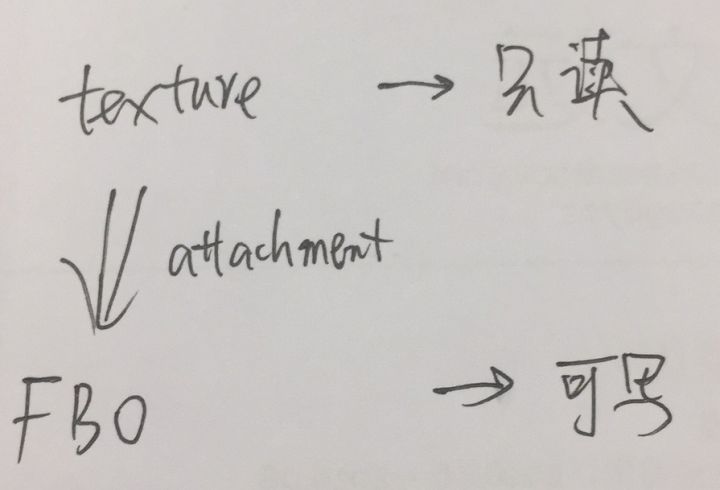 texture → 只读
attachment
FBO → 可写